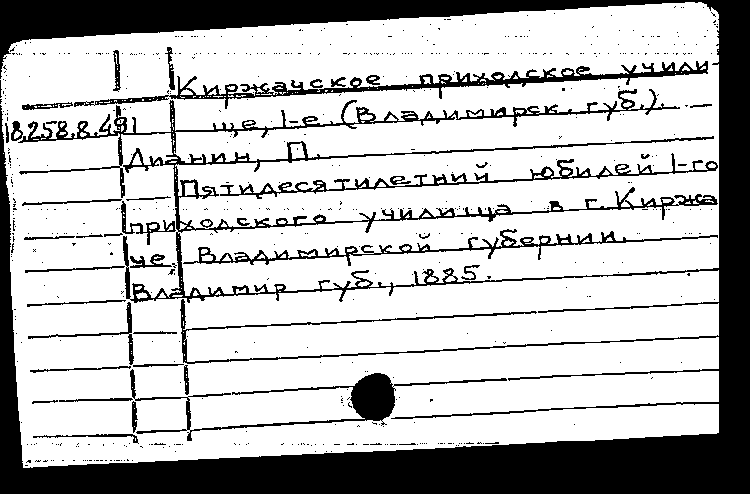 Киржачское приходское учили-
18.258.8.491 ще, 1-е (Владимирск. губ.).
Дианин, П.
Пятидесятилетний юбилей 1-го
приходского училища в г. Киржа
че, Владимирской губернии.
Владимир губ., 1885.